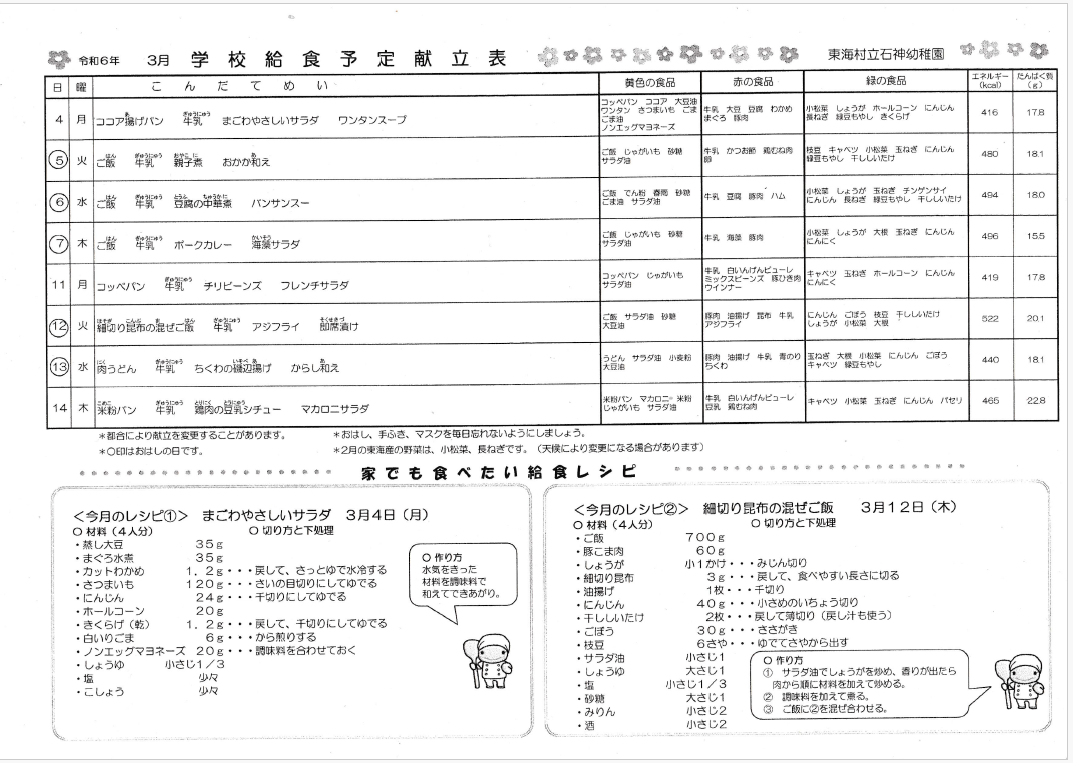 令和6年 3月 学校給食予定献立表 東海村立石神幼稚園
日 曜 こんだてめい 黄色の食品 赤の食品 緑の食品 エネルギー(kcal) たんぱく質(g)
4 月 ココア揚げパン 牛乳 まごわやさしいサラダ ワンタンスープ
コッペパン ココア 大豆油
ワンタン さつまいも ごま
ごま油
ノンエッグマヨネーズ
牛乳 大豆 豆腐 わかめ
まぐろ 豚肉
小松菜 しょうが ホールコーン にんじん
長ねぎ 緑豆もやし きくらげ
416 17.8
⑤ 火 ご飯 牛乳 親子煮 おかか和え
ご飯 じゃがいも 砂糖
サラダ油
牛乳 かつお節 鶏むね肉
卵
枝豆 キャベツ 小松菜 玉ねぎ にんじん
緑豆もやし 干ししいたけ
480 18.1
⑥ 水 ご飯 牛乳 豆腐の中華煮 バンサンスー
ご飯 でん粉 春雨 砂糖
ごま油 サラダ油
牛乳 豆腐 豚肉 ハム
小松菜 しょうが 玉ねぎ チンゲンサイ
にんじん 長ねぎ 緑豆もやし 干ししいたけ
494 18.0
⑦ 木 ご飯 牛乳 ポークカレー 海藻サラダ
ご飯 じゃがいも 砂糖
サラダ油
牛乳 海藻 豚肉
小松菜 しょうが 大根 玉ねぎ にんじん
にんにく
496 15.5
11 月 コッペパン 牛乳 チリビーンズ フレンチサラダ
コッペパン じゃがいも
サラダ油
牛乳 白いんげんピューレ
ミックスビーンズ 豚ひき肉
ウインナー
キャベツ 玉ねぎ ホールコーン にんじん
にんにく
419 17.8
⑫ 火 細切り昆布の混ぜご飯 牛乳 アジフライ 即席漬け
ご飯 サラダ油 砂糖
大豆油
豚肉 油揚げ 昆布 牛乳
アジフライ
にんじん ごぼう 枝豆 干ししいたけ
しょうが 小松菜 大根
522 20.1
⑬ 水 肉うどん 牛乳 ちくわの磯辺揚げ からし和え
うどん サラダ油 小麦粉
大豆油
豚肉 油揚げ 牛乳 青のり
ちくわ
玉ねぎ 大根 小松菜 にんじん ごぼう
キャベツ 緑豆もやし
440 18.1
14 木 米粉パン 牛乳 鶏肉の豆乳シチュー マカロニサラダ
米粉パン マカロニ 米粉
じゃがいも サラダ油
牛乳 白いんげんピューレ
豆乳 鶏むね肉
キャベツ 小松菜 玉ねぎ にんじん パセリ
465 22.8
＊都合により献立を変更することがあります。 ＊おはし、手ふき、マスクを毎日忘れないようにしましょう。
＊〇印はおはしの日です。 ＊2月の東海産の野菜は、小松菜、長ねぎです。（天候により変更になる場合があります）
家でも食べたい給食レシピ
＜今月のレシピ①＞ まごわやさしいサラダ 3月4日（月）
〇 材料（4人分） 〇 切り方と下処理
・蒸し大豆 35g
・まぐろ水煮 35g
・カットわかめ 1．2g・・・戻して、さっとゆで水冷する
・さつまいも 120g・・・さいの目切りにしてゆでる
・にんじん 24g・・・千切りにしてゆでる
・ホールコーン 20g
・きくらげ（乾） 1．2g・・・戻して、千切りにしてゆでる
・白いりごま 6g・・・から煎りする
・ノンエッグマヨネーズ 20g・・・調味料を合わせておく
・しょうゆ 小さじ1／3
・塩 少々
・こしょう 少々
〇 作り方
水気をきった
材料を調味料で
和えてできあがり。
＜今月のレシピ②＞ 細切り昆布の混ぜご飯 3月12日（木）
〇 材料（4人分） 〇 切り方と下処理
・ご飯 700g
・豚こま肉 60g
・しょうが 小1かけ・・・みじん切り
・細切り昆布 3g・・・戻して、食べやすい長さに切る
・油揚げ 1枚・・・千切り
・にんじん 40g・・・小さめのいちょう切り
・干ししいたけ 2枚・・・戻して薄切り（戻し汁も使う）
・ごぼう 30g・・・ささがき
・枝豆 6さや・・・ゆでてさやから出す
・サラダ油 小さじ1
・しょうゆ 大さじ1
・塩 小さじ1／3
・砂糖 大さじ1
・みりん 小さじ2
・酒 小さじ2
〇 作り方
① サラダ油でしょうがを炒め、香りが出たら
肉から順に材料を加えて炒める。
② 調味料を加えて煮る。
③ ご飯に②を混ぜ合わせる。